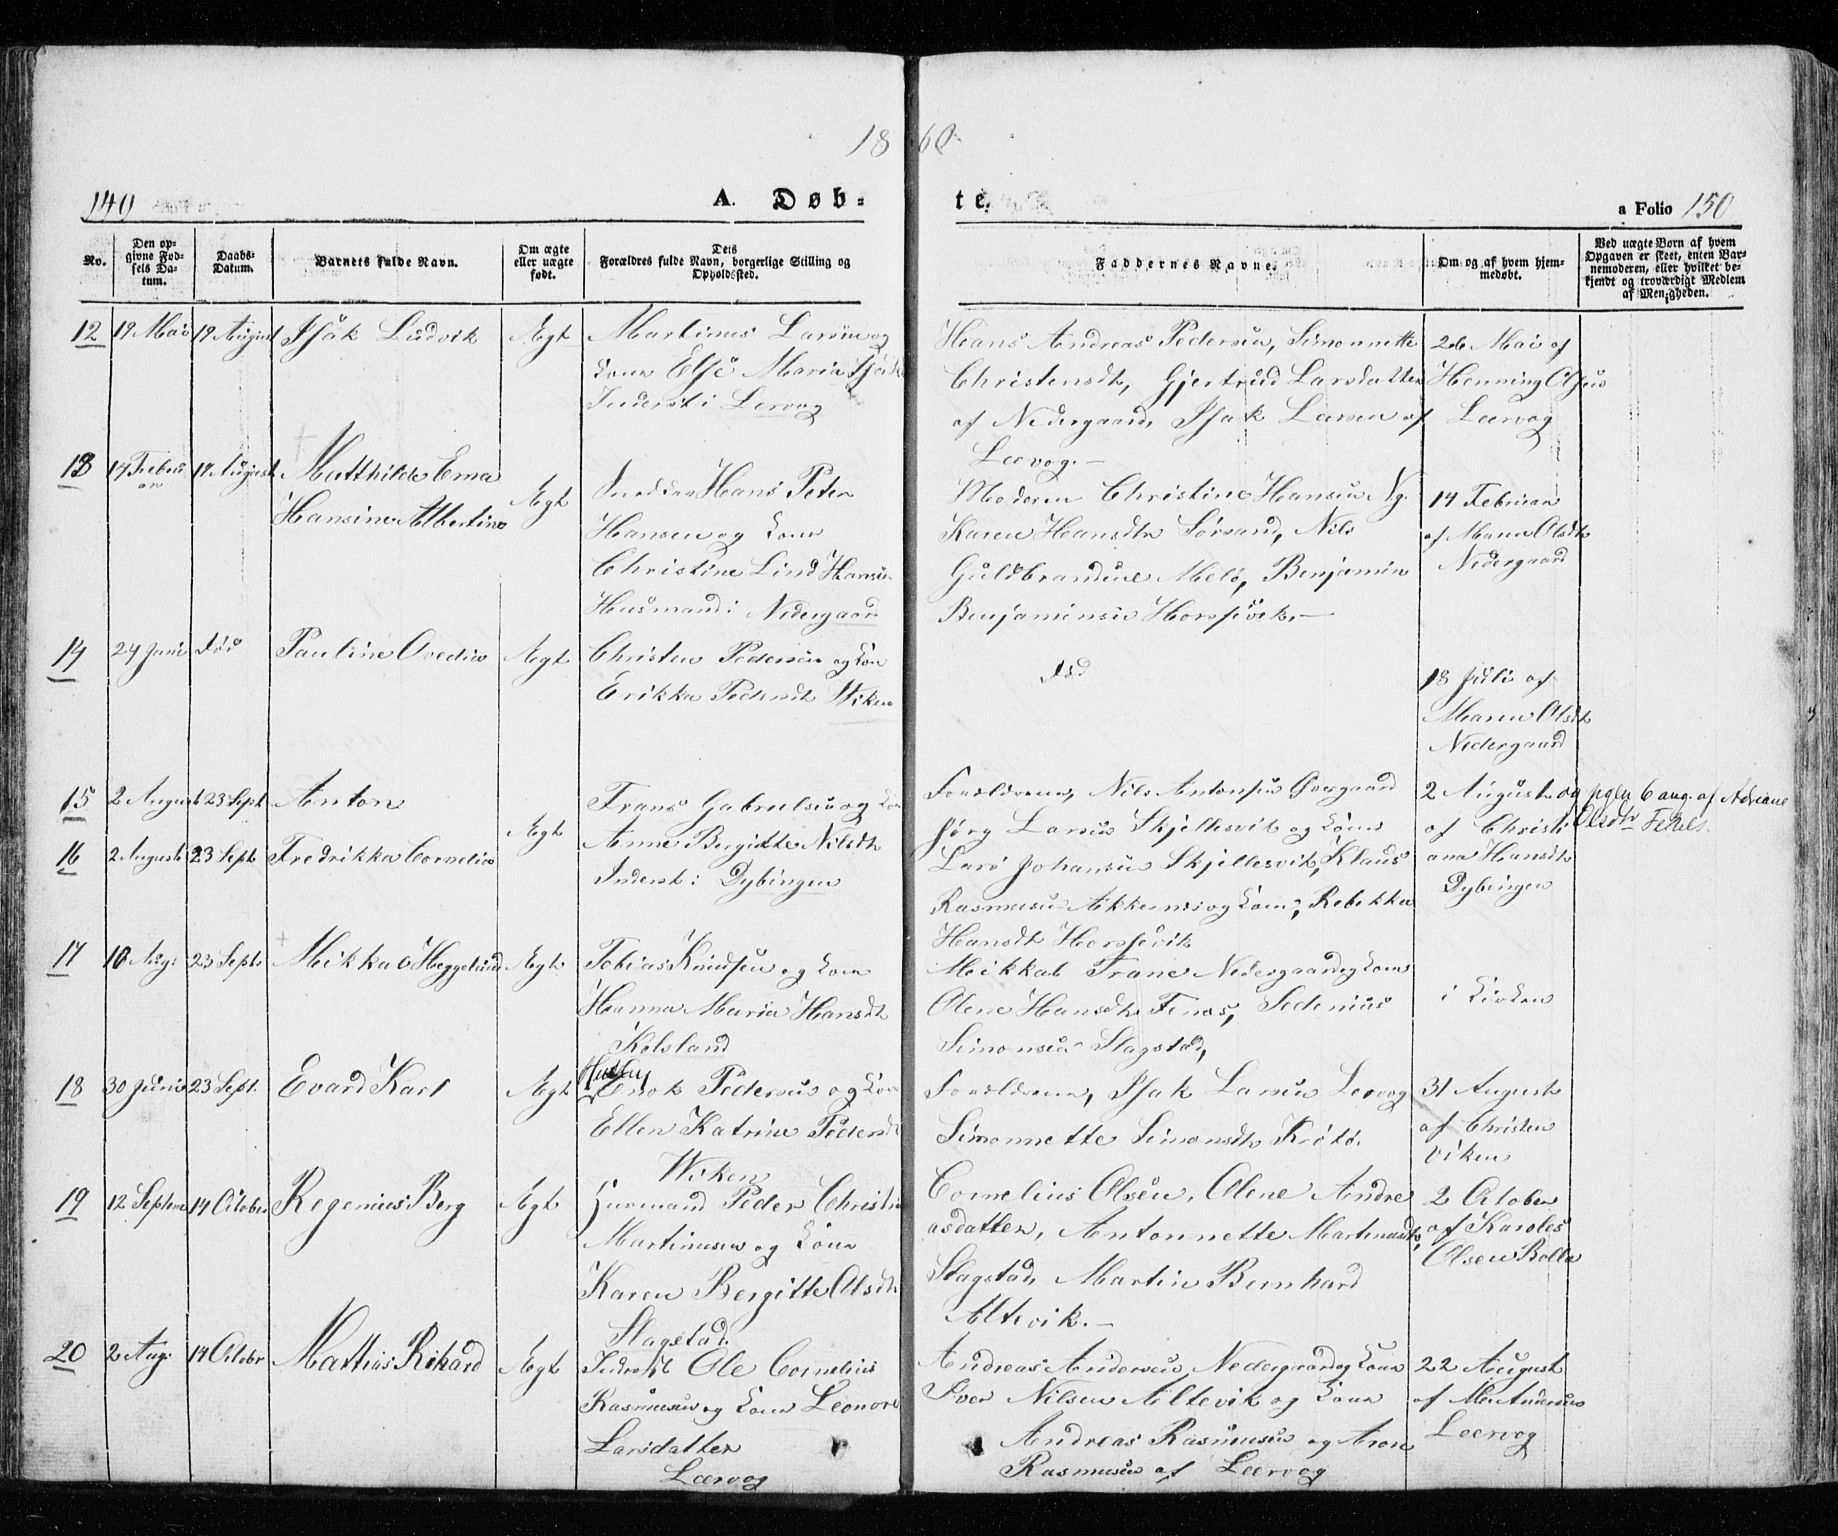 1860.
149
A. Døb-
te.
a Folio 150
No.
Den op-
givne Fød-
sels Da-
tum.
Daabs-
Datum.
Barnets fulde Navn.
Om ægte
eller uægte
født.
Dets
Forældres fulde Navn, borgerlige Stilling og
Opholdssted.
Faddernes Navne.
Om og af hvem hjem-
medøbt.
Ved uægte Børn af hvem
Opgaven er skeet, enten Bar-
nemoderen, eller hvilket be-
kjendt og troværdigt Medlem
af Menigheden.
12
19 Mai
19 August
Isak Ludvik
Ægt
Martinus Larsen og
Kone Else Maria
Inderst i Lervog
Hans Andreas Pedersen, Simonnette
Christensdt, Gjertrud Larsdatter
af Nedergaard, Isak Larsen af
Leervog.—
26 Mai af
Henning Olsen
Leervog
13
14 Februar
19 August
Matthilde Ema
Hansine Albertine
Ægt
Hans Peter
Hansen og Kone
Christine Lind Hansen
Husmand i Nedergaard
Moderen Christine Hansen Ng.
Karen Hansdtr Sørsand, Nils
Guldbrandsen Melø, Benjamin
Benjaminsen Horsevik.—
14 Februar
af Maren Olsdtr
Nedergaard
14
24 Juni
død
Pauline Ovedia
Ægt
Christen Pedersen og Kone
Erikka Pedersdt Wiken
død
18 Juli af
Maren Olsdtr
Nedergaard
15
2 August
23 Sept
Anton
16
2 August
23 Sept
Fredrikka Cornelia
Ægt
Frans Gabrielsen og Kone
Anne Bergitte Nilsdt
Inderst i Dybingen
Forældrene, Nils Antonsen Overgaard
Jørg Larsen Skjellesvik og Kone
Lars Johansen Skjellesvik, Klaus
Rasmusen Akkernes og Kone, Rebekka
Hansdt Horsevik
2 August
af Christi
ana Hansdt
Dybingen
og igen 6 aug. af Adriane
Olsdtr
17
10 Aug:
23 Sept.
Mikkal Heggelund
Ægt
Tobias Knudsen og Kone
Hanna Maria Hansdt
Kolsland
Mikkal Trane Nedergaard og Kone
Olene Hansdt Finnes, Sedenius
Simonsen Slagstad,
i Kirken
18
30 Juni
23 Sept.
Evard Karl
Ægt
Enok Pedersen og Kone
Ellen Katrine Pedersdt
Wiken
Forældrene, Isak Larsen Leervog
Simonnette Simonsdt Krøtø.
31 August
af Christen
Viken
19
12 Septemb
14 October
Regenius Berg
Ægt
Husmand Peder Christian
Martinusen og Kone
Karen Bergitte Olsdt
Slagstad.
Cornelius Olsen, Olene Andre
asdatter, Antonnette Martinusdt,
Slagstad, Martin Bernhard
Altevik.—
2 October
af Karoles
Olsen Rolla
20
2 Aug:
14 Octobr
Mathias Rikard
Ægt
Inderst Ole Cornelius
Rasmusen og Kone Leonore
Larsdatter
Leervog
Andreas Andersen Nedergaard og Kone
Iver Nilsen Altevik og Kone
Andreas Rasmusen og Aron
Rasmusen af Leervog
22 August
af Andersen
Leervog